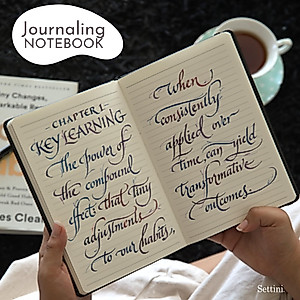 Journaling
NOTEBOOK
TIMES BESTSELLER
iny Changes,
arkable Re
es Clea
CHAPTER 1-
KEY LEARNING
The power of
the compound
effect that tiny
adjustments
to our habits,
When
consistently
applied over
time can yield
transformative
outcomes.
Settini